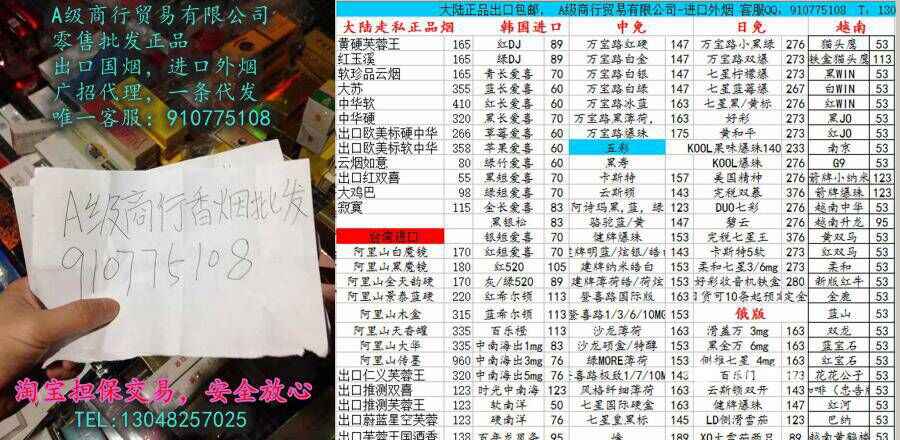 A级商行贸易有限公司
零售批发正品
出口国烟，进口外烟
广招代理，一条代发
唯一客服：910775108
A级商行香烟批发
910775108
淘宝担保交易，安全放心
TEL:13048257025
大陆正品出口包邮， A级商行贸易有限公司-进口外烟 客服QQ，910775108 T，130
大陆走私正品烟 韩国进口 中免 日免 越南
黄硬芙蓉王 165 红DJ 89 万宝路红硬 147 万宝路小黑绿 276 猫头鹰 53
红玉溪 165 绿DJ 89 万宝路白金 147 万宝路双爆 276 铁盒猫头鹰 113
软珍品云烟 165 青长爱喜 60 万宝路白银 147 七星柠檬爆 273 黑WIN 53
大苏 355 蓝长爱喜 60 万宝路白绿 147 七星蓝莓爆 267 白WIN 53
中华软 410 红长爱喜 60 万宝路冰蓝 163 七星黑/黄标 276 红WIN 53
中华硬 320 黑长爱喜 60 万宝路黑薄荷, 163 好彩 273 黑JO 53
出口欧美标硬中华 266 草莓爱喜 60 万宝路爆珠 175 黄和平 273 红JO 53
出口欧美标软中华 358 苹果爱喜 60 五彩 KOOL果味爆珠140 233 南京 53
云烟如意 80 绿竹爱喜 60 黑寿 KOOL爆珠 276 G9 53
出口红双喜 55 黑短爱喜 60 卡斯特 157 美国精神 276 箭牌小纳米 123
大鸡巴 98 绿短爱喜 60 云斯顿 143 完税双慕 376 箭牌爆珠 123
寂寞 115 金长爱喜 83 阿诗玛黑,蓝，绿 123 DUO七彩 276 越南中华 53
黑银松 83 骆驼蓝/黄 147 碧云 276 越南升龙 95
台湾进口 银短爱喜 70 健牌爆珠 153 完税七星王 376 黄双马 53
阿里山白魔镜 170 红短爱喜 70 建牌明蓝/炫银/皓白 卡斯特5软 273 红双马 53
阿里山黑魔镜 180 红520 105 建牌纳米皓白 163 柔和七星3/6mg 273 柔和 53
阿里山金天韵硬 170 灰/绿520 89 建牌薄荷皓/荷炫 好彩收音机铁盒 280 新版红牛 53
阿里山景泰蓝硬 220 红希尔顿 113 登喜路国际版 163 金鹿 53
阿里山木盒 315 蓝希尔顿 113 登喜路1/3/6/10MG 俄版 蓝山 53
阿里山天香罐 335 百乐橙 113 沙龙薄荷 163 滑盖万 3mg 163 双龙 53
阿里山大华 335 中南海出1mg 83 沙龙硕会/特醇 153 黑金万 6mg 163 蓝宝石 53
阿里山传墨 960 中南海出3mg 76 绿MORE薄荷 153 侧推 4mg 163 红宝石 53
出口仁义芙蓉王 320 中南海出5mg 76 登喜路极致1/7/10M 百乐门 373 花花公子 53
出口推测双喜 123 时光中南海 123 风格纤细薄荷 153 云斯顿双开 143
出口推测芙蓉王 123 软南洋 50 七星国际硬盒 163 健牌爆珠 157 红河 53
出口蔚蓝星空芙蓉 123 硬南洋 50 七星皇黑标 145 LD侧滑雪茄 123 巴纳 53